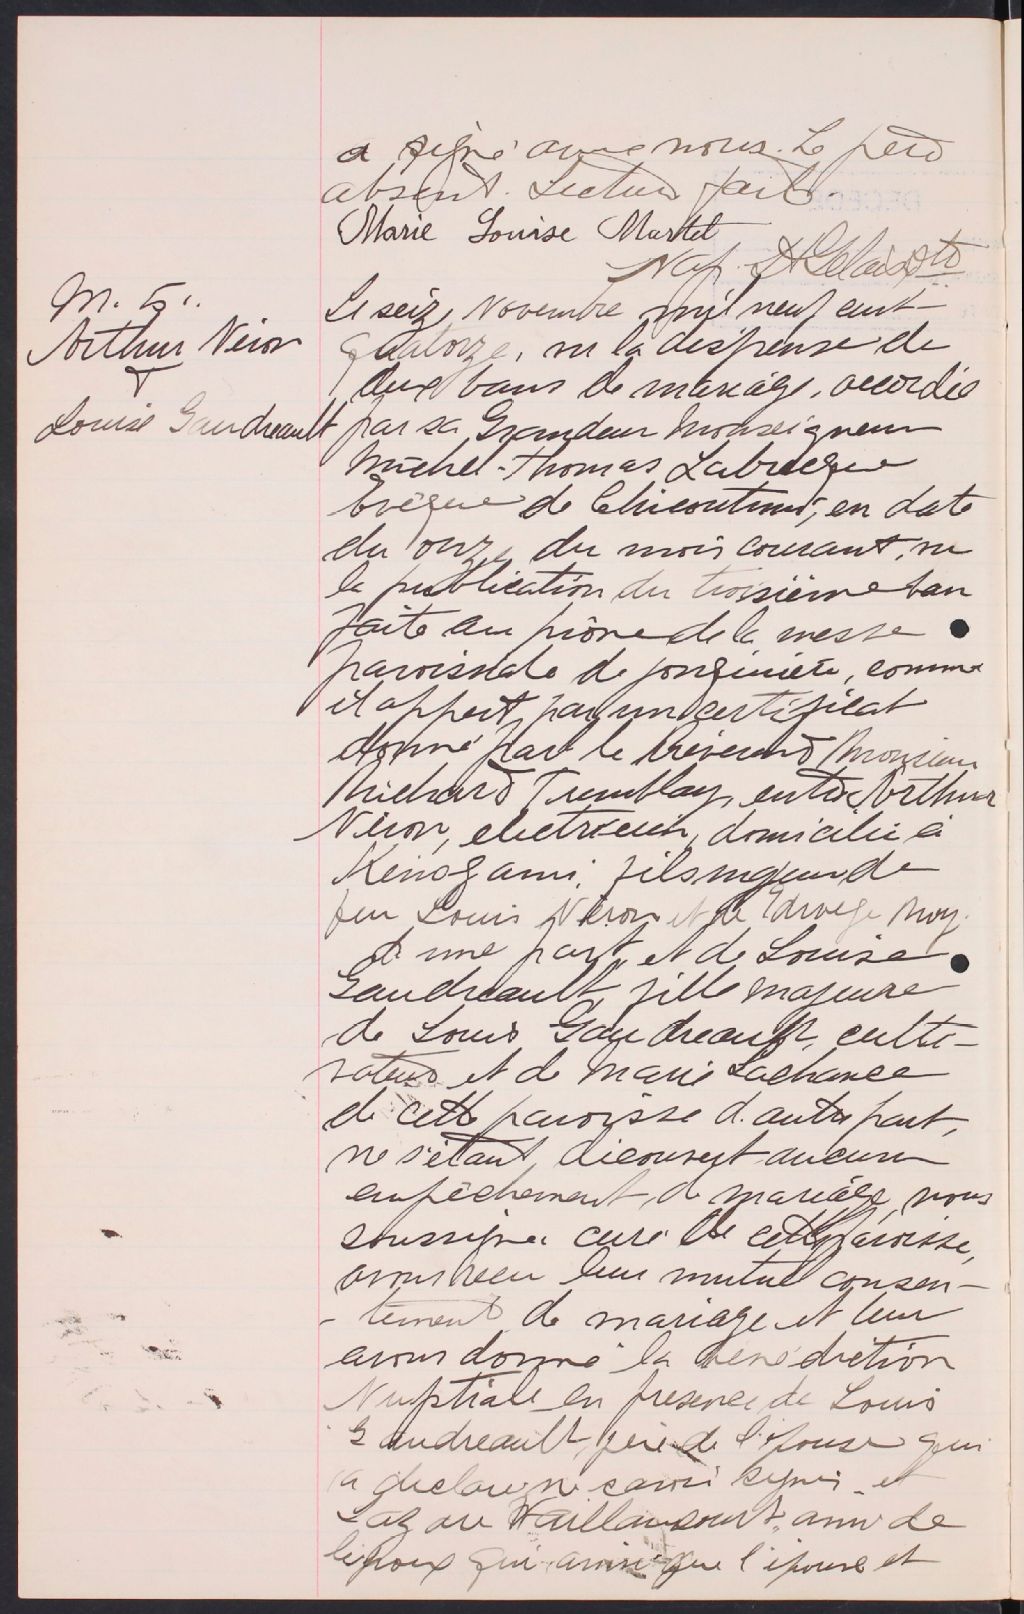 a signé avec nous. Le père
absent. Lecture faite
Marie Louise Martel
Nap.
M. 5..
Arthur Néron
&
Louise Gaudreault
Le seize Novembre mil neuf cent
quatorze, vu la dispense de
deux bans de mariage, accordée
par sa Grandeur Monseigneur
Michel-Thomas Labrecque
Evêque de Chicoutimi, en date
du onze du mois courant, vu
la publication du troisième ban
faite au prône de la messe
paroissiale de Jonquière, comme
il appert par un certificat
donné par le Révérend Monsieur
Richard Tremblay, entre Arthur
Néron, electricien, domicilié à
Kenogami, fils majeur de
feu Louis Néron et de Edwige
d'une part, et de Louise
Gaudreault, fille majeure
de Louis Gaudreault, culti-
vateur et de Marie Lachance
de cette paroisse d'autre part,
ne s'étant découvert aucun
empêchement de mariage, nous
soussigné curé de cette paroisse,
avons reçu leur mutuel consen-
-tement de mariage et leur
avons donné la bénédiction
Nuptiale en présence de Louis
Gaudreault, père de l'épouse qui
a déclaré ne savoir signer et
Lazare Vaillancourt, ami de
l'époux qui ainsi que l'épouse et